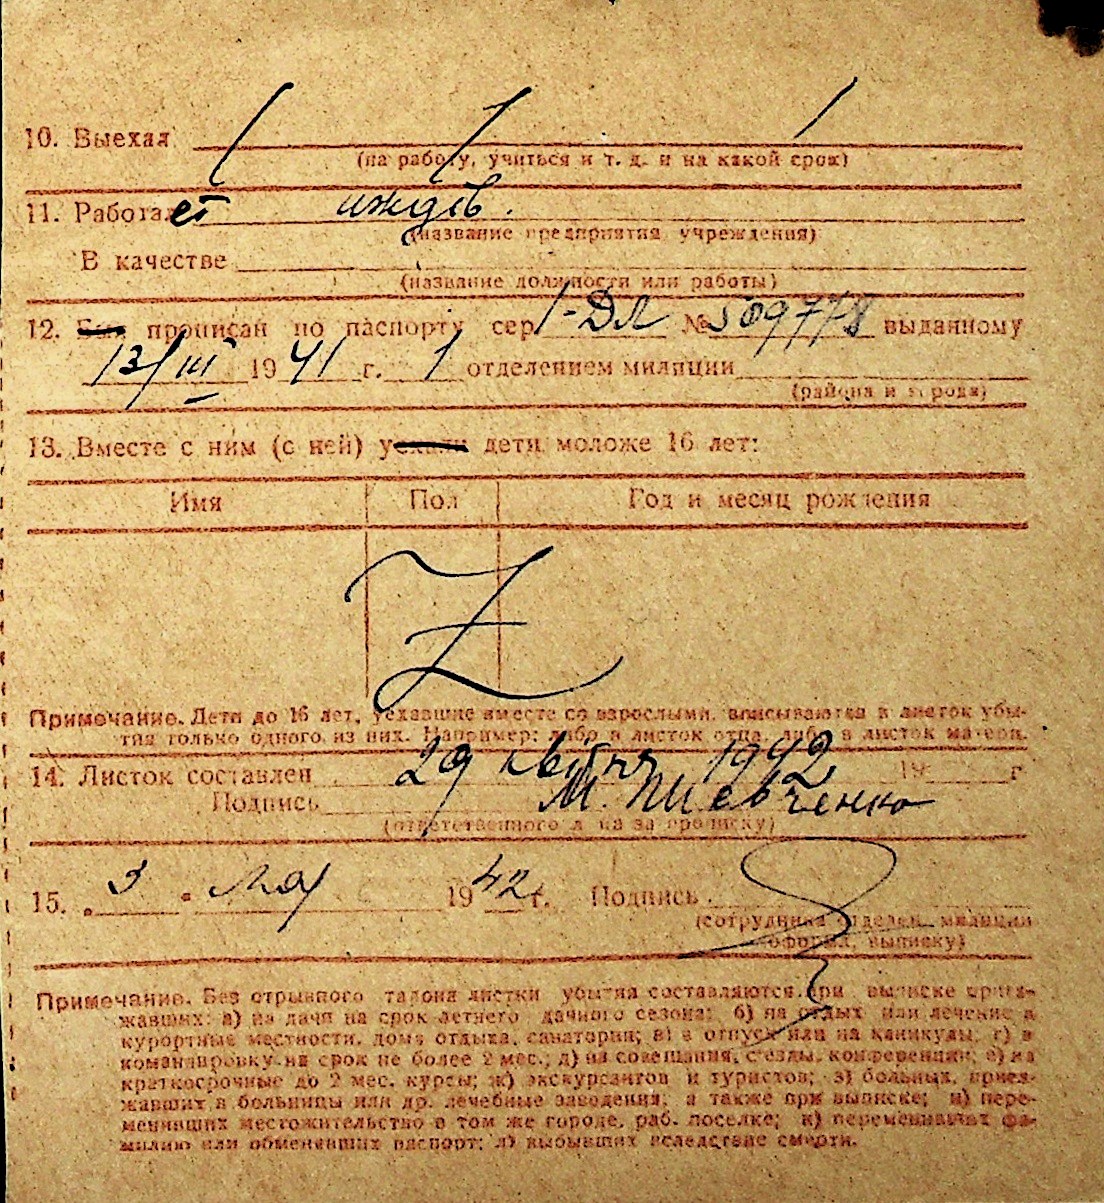 10. Выехал
(на работу, учиться и т. д. и на какой срок)
11. Работает иждев.
(название предприятия учреждения)
В качестве
(название должности или работы)
12. Был прописан по паспорту сер. I-ДЛ № 509778 выданному
13/III 1941 г. 1 отделением милиции
(района и города)
13. Вместе с ним (с ней) уехали дети моложе 16 лет:
Имя Пол Год и месяц рождения
Z
Примечание. Дети до 16 лет, уехавшие вместе со взрослыми, вписываются в листок убы-
тия только одного из них. Например: либо в листок отца, либо в листок матери.
14. Листок составлен 29 квітня 1942 19 г
Подпись М. Шевченко
(ответственного лица за прописку)
15. „3" мая 1942 г. Подпись
(сотрудника отделен. милиции
оформ. выписку)
Примечание. Без отрывного талона листки убытия составляются при выписке приез-
жавших: а) на дачи на срок летнего дачного сезона; б) на отдых или лечение в
курортные местности, дома отдыха, санатории; в) в отпуск или на каникулы; г) в
командировку на срок не более 2 мес.; д) на совещания, съезды, конференции; е) на
краткосрочные до 2 мес. курсы; ж) экскурсантов и туристов; з) больных, приез-
жавших в больницы или др. лечебные заведения; а также при выписке; и) пере-
менивших местожительство в том же городе, раб. поселке; к) переменивших фа-
милию или обменявших паспорт; л) выбывших вследствие смерти.